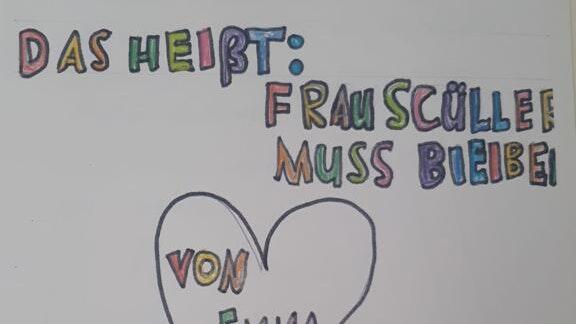 DAS HEIßT:
FRAU SCÜLLER
MUSS BlEIBEN
VON